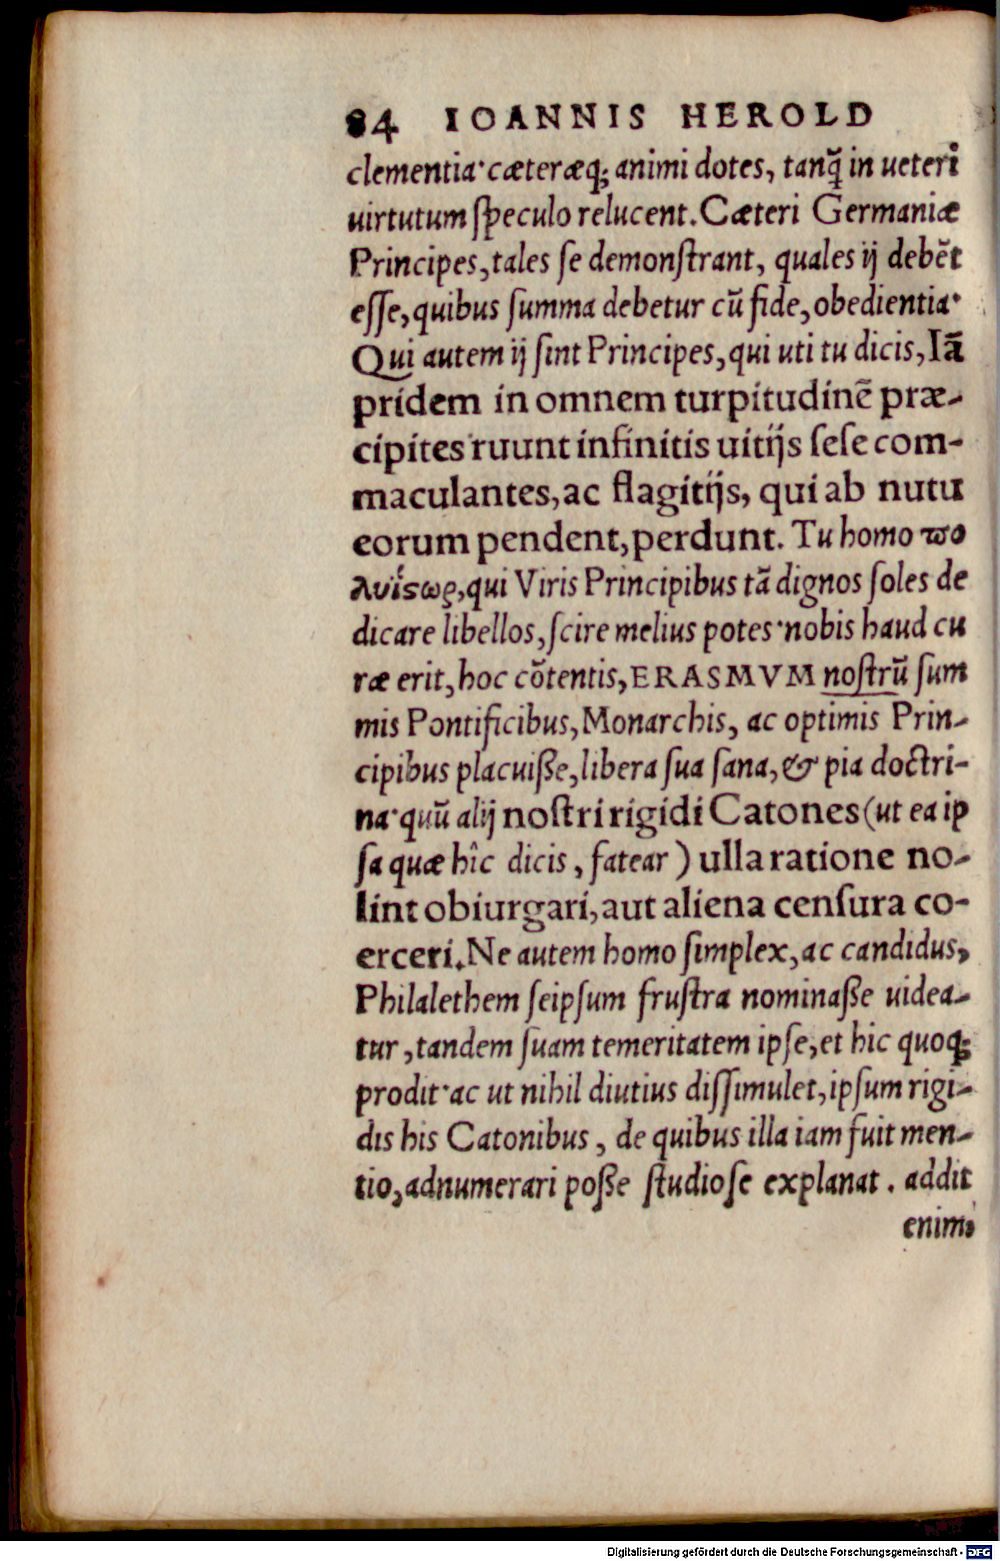 84 IOANNIS HEROLD
clementia·cæteræq; animi dotes, tanq̃ in ueteri
uirtutum ſpeculo relucent. Cæteri Germaniæ
Principes, tales ſe demonſtrant, quales ij debẽt
eſſe, quibus ſumma debetur cũ fide, obedientia·
Qui autem ij ſint Principes, qui uti tu dicis, Iã
pridem in omnem turpitudinẽ præ-
cipites ruunt infinitis uitijs ſeſe com-
maculantes, ac flagitijs, qui ab nutu
eorum pendent, perdunt. Tu homo πο
λυΐςωρ, qui Viris Principibus tã dignos ſoles de
dicare libellos, ſcire melius potes·nobis haud cu
ræ erit, hoc cõtentis, ERASMVM noſtrũ ſum
mis Pontificibus, Monarchis, ac optimis Prin-
cipibus placuiße, libera ſua ſana, & pia doctri-
na·quũ alij noſtri rigidi Catones (ut ea ip
ſa quæ hîc dicis, fatear) ulla ratione no-
lint obiurgari, aut aliena cenſura co-
erceri. Ne autem homo ſimplex, ac candidus,
Philalethem ſeipſum fruſtra nominaße uidea-
tur, tandem ſuam temeritatem ipſe, et hic quoq;
prodit·ac ut nihil diutius diſſimulet, ipſum rigi-
dis his Catonibus, de quibus illa iam fuit men-
tio, adnumerari poße ſtudioſe explanat. addit
enim
Digitalisierung gefördert durch die Deutsche Forschungsgemeinschaft - DFG